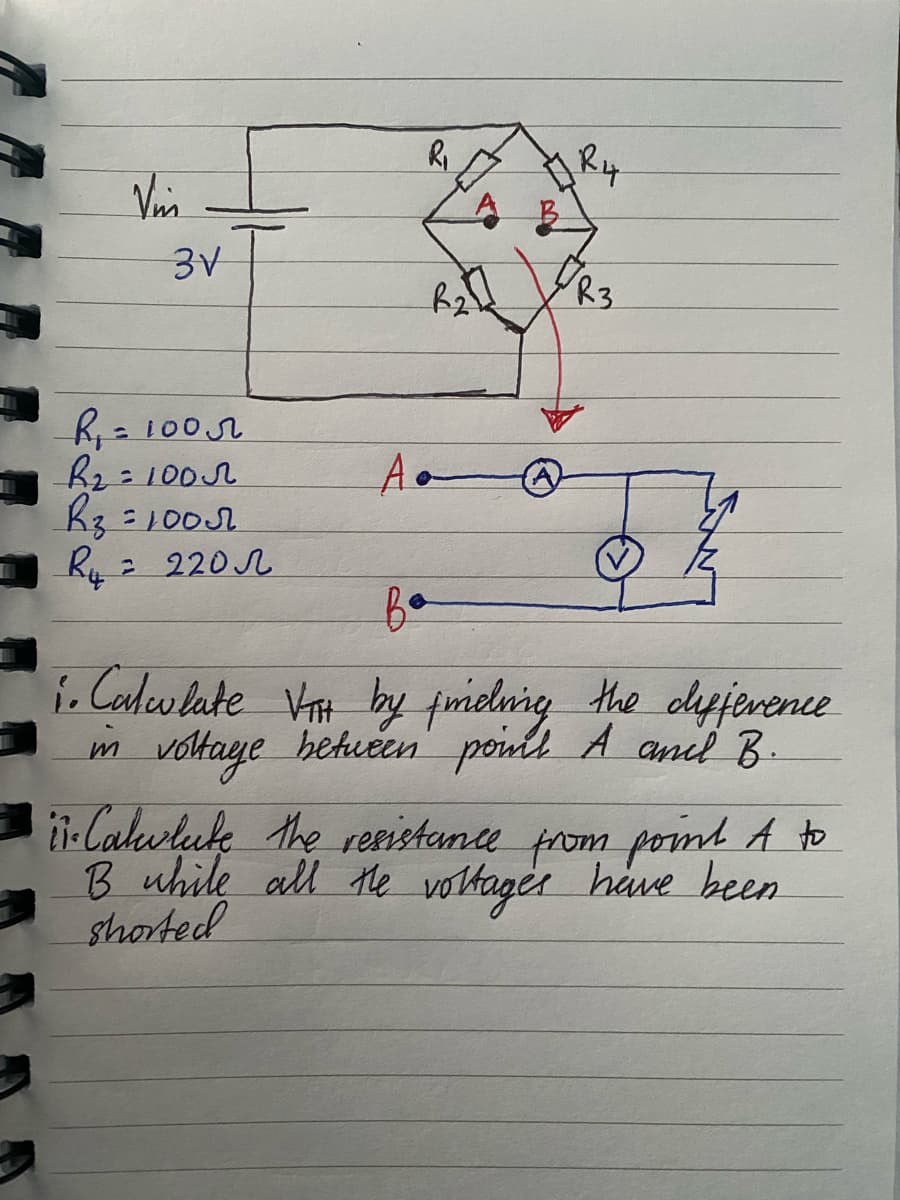 R₁
R₄
Vin
A
B
3V
R₂
R3
R₁ = 100Ω
R₂ = 100Ω
R₃ = 100Ω
R₄ = 220Ω
A
A
V
B
i. Calculate VTH by finding the difference
in voltage between point A and B.
ii. Calculate the resistance from point A to
B while all the voltages have been
shorted